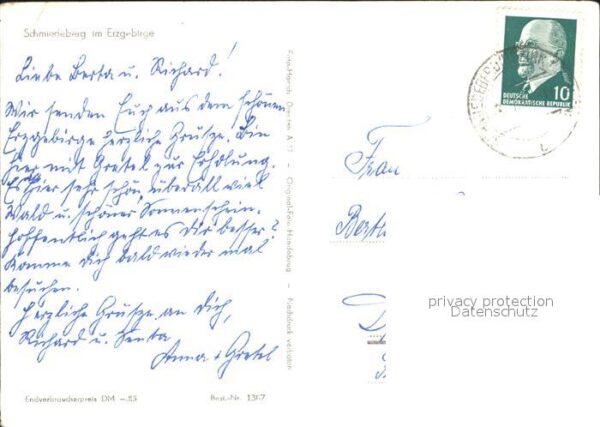 Schmiedeberg im Erzgebirge
Liebe Berta u. Richard!
Wir senden Euch aus dem schönen
Erzgebirge herzliche Grüsze. Bin
hier mit Gretel zur Erholung.
Es ist hier sehr schön, überall viel
Wald u. schöner Sonnenschein.
Hoffentlich geht es Dir besser?
Komme Dich bald wieder mal
besuchen.
Herzliche Grüsze an Dich,
Richard u. Senta
Anna + Gretel
Endverbraucherpreis DM –.85
Best.-Nr. 1307
Original-Foto: Handabzug – Nachdruck verboten
DEUTSCHE
DEMOKRATISCHE REPUBLIK
10
Frau
privacy protection
Datenschutz